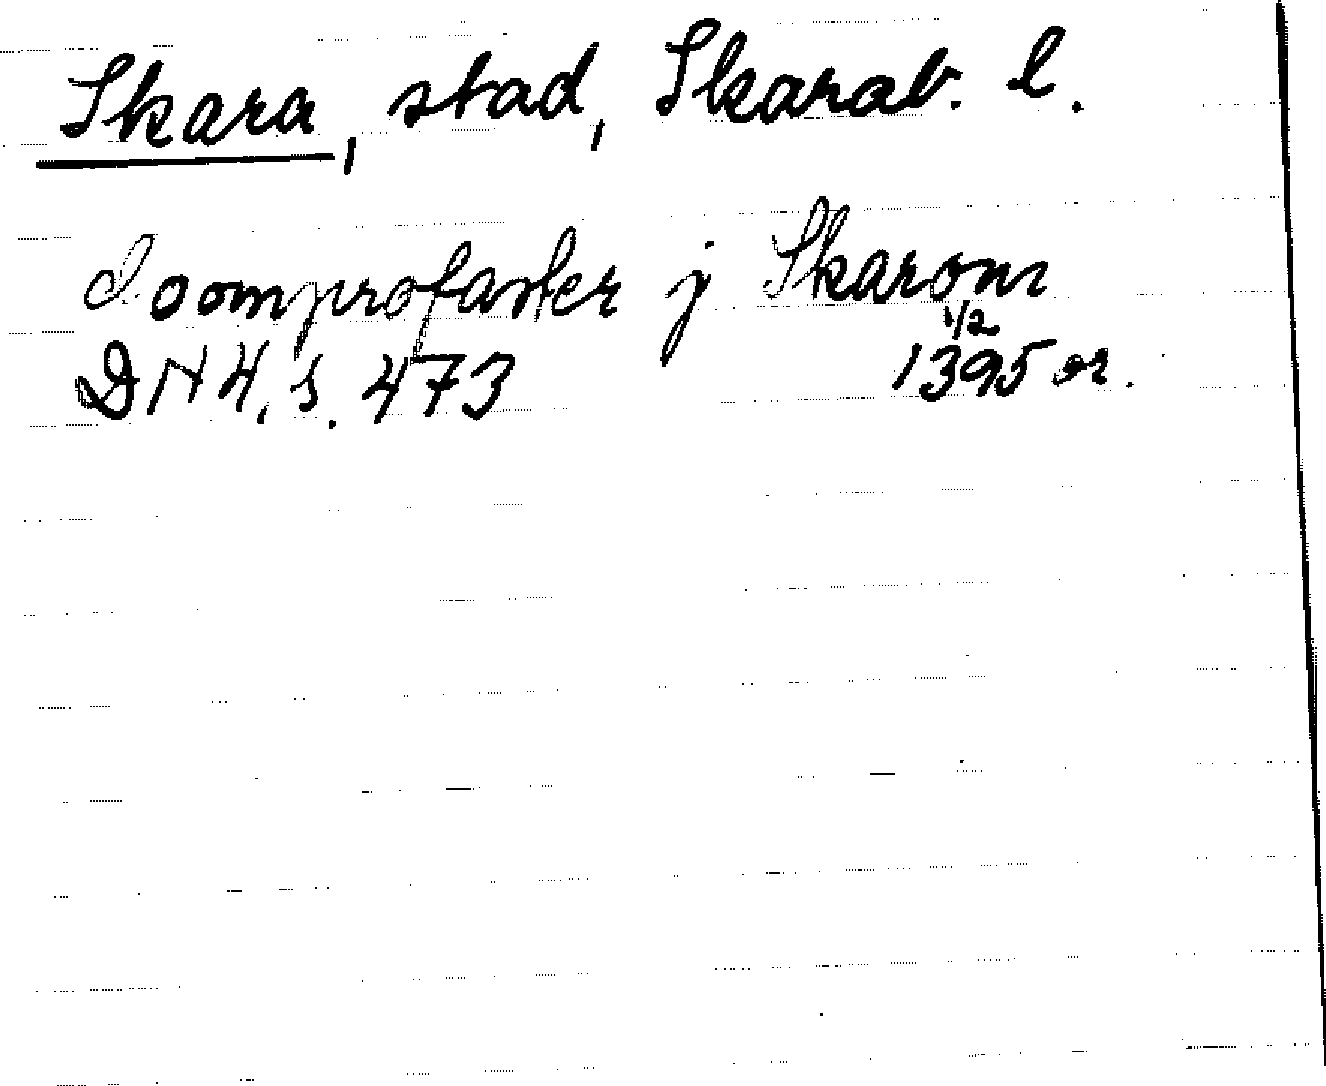 Skara, stad, Skarab. l.
Doomprofaster j Skarom
DN 4, s. 473 1/2 1395 or.